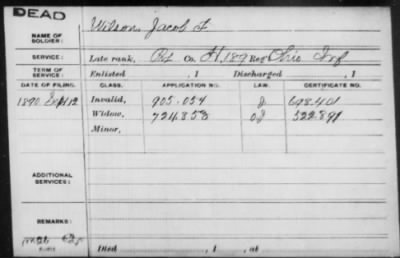 DEAD
NAME OF SOLDIER: Wilson, Jacob F
SERVICE: Late rank, Pvt Co. H, 189 Reg't Ohio Inf
TERM OF SERVICE: Enlisted , 1 Discharged , 1
DATE OF FILING. CLASS. APPLICATION NO. LAW. CERTIFICATE NO.
1890 Sept 12 Invalid, 905.054 J 698.401
Widow, 724858 OJ 522.891
Minor,
ADDITIONAL SERVICES:
REMARKS:
Died , 1 , at